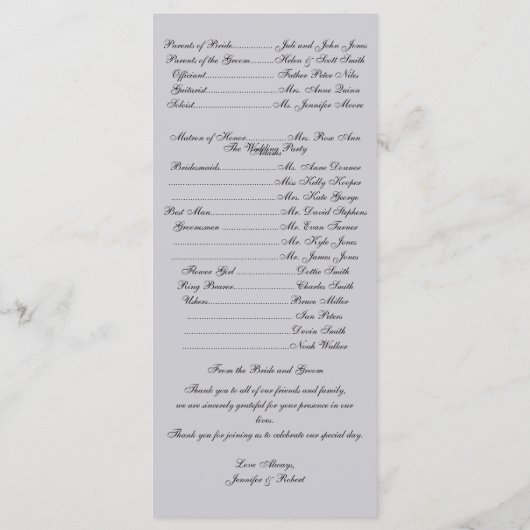 Parents of Bride.................. Juli and John Jones
Parents of the Groom..........Helen & Scott Smith
Officiant............................... Father Peter Niles
Guitarist................................Mrs. Anne Quinn
Soloist...................................Ms. Jennifer Moore
Matron of Honor..................Mrs. Rose Ann
The Wedding Party
Adams
Bridesmaids.........................Ms. Anne Donner
................................................Miss Kelly Kooper
................................................Mrs. Kate George
Best Man..............................Mr. David Stephens
Groomsmen .........................Mr. Evan Turner
................................................Mr. Kyle Jones
................................................Mr. James Jones
Flower Girl ..........................Dottie Smith
Ring Bearer...........................Charles Smith
Ushers.....................................Bruce Miller
................................................ Ian Peters
................................................Devin Smith
................................................Noah Walker
From the Bride and Groom
Thank you to all of our friends and family,
we are sincerely grateful for your presence in our
lives.
Thank you for joining us to celebrate our special day.
Love Always,
Jennifer & Robert